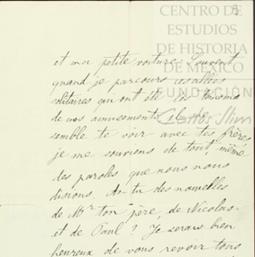 CENTRO DE
ESTUDIOS
DE HISTORIA
DE MÉXICO
FUNDACIÓN
et ma petite voiture. Souvent
quand je parcours ces allées
solitaires qui ont été les témoins
de nos amusements il me
semble te voir avec tes frères
je me souviens de tout même
des paroles que nous nous
disions. As-tu des nouvelles
de Mr ton père, de Nicolas
et de Paul ? Je serais bien
heureux de vous revoir tous